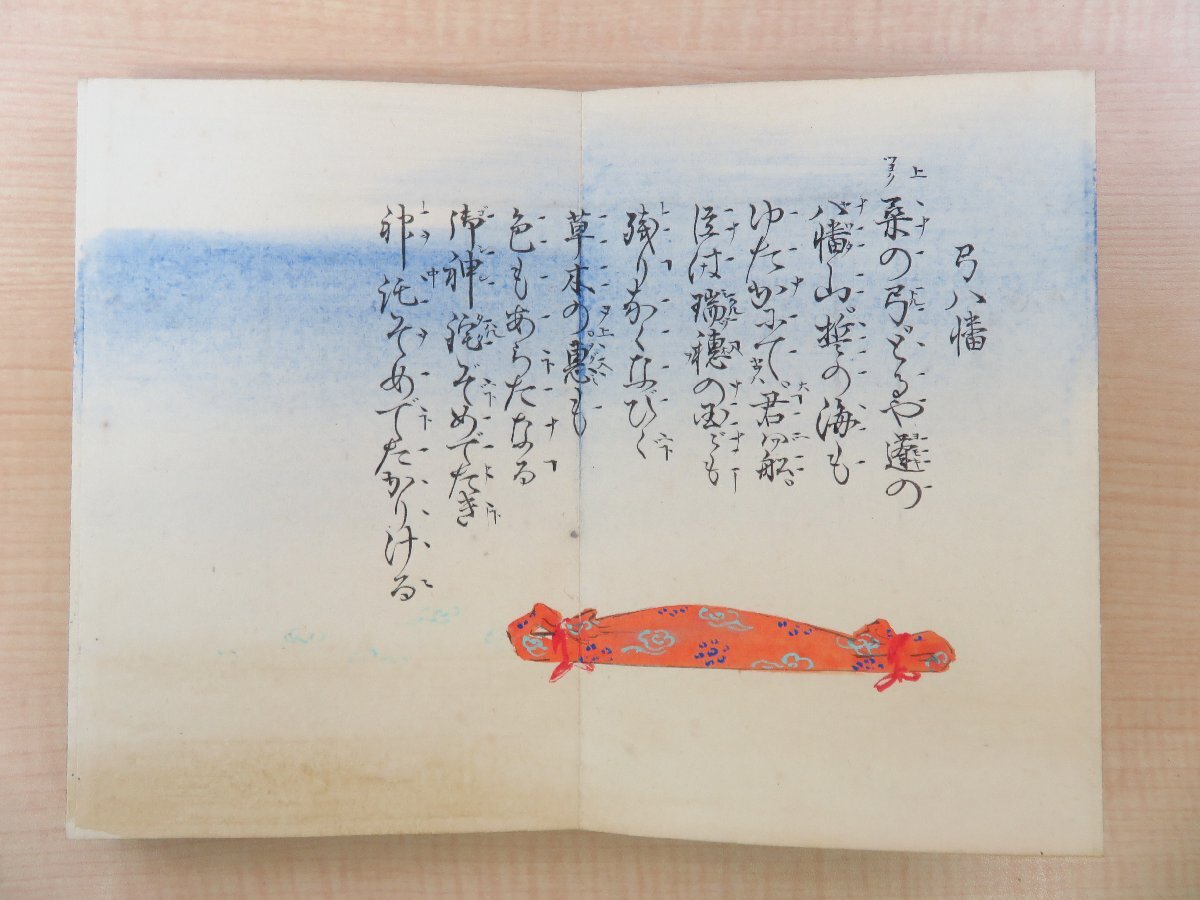 弓八幡
上
桑の弓とるや蓬の
八幡山。誓の海も
ゆたかにて。君は船。
臣は瑞穂の国〲も
残りなくなびく
草木の。惠も
色もあらたなる
御神託ぞめでたき
神託ぞめでたかりける